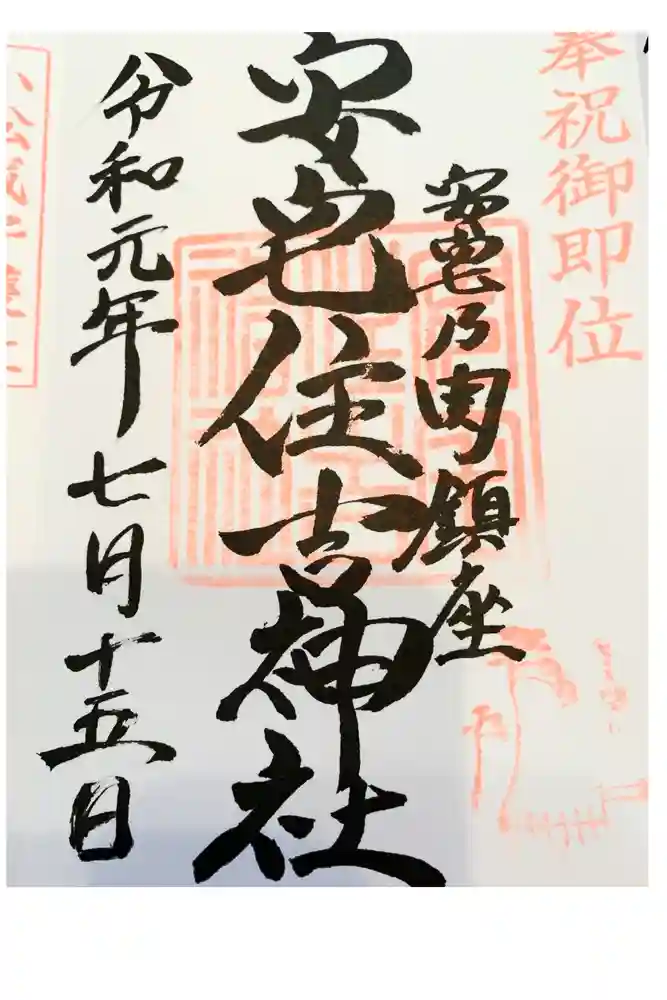 奉祝御即位
安宅乃関鎮座
安宅住吉神社
令和元年七月十五日